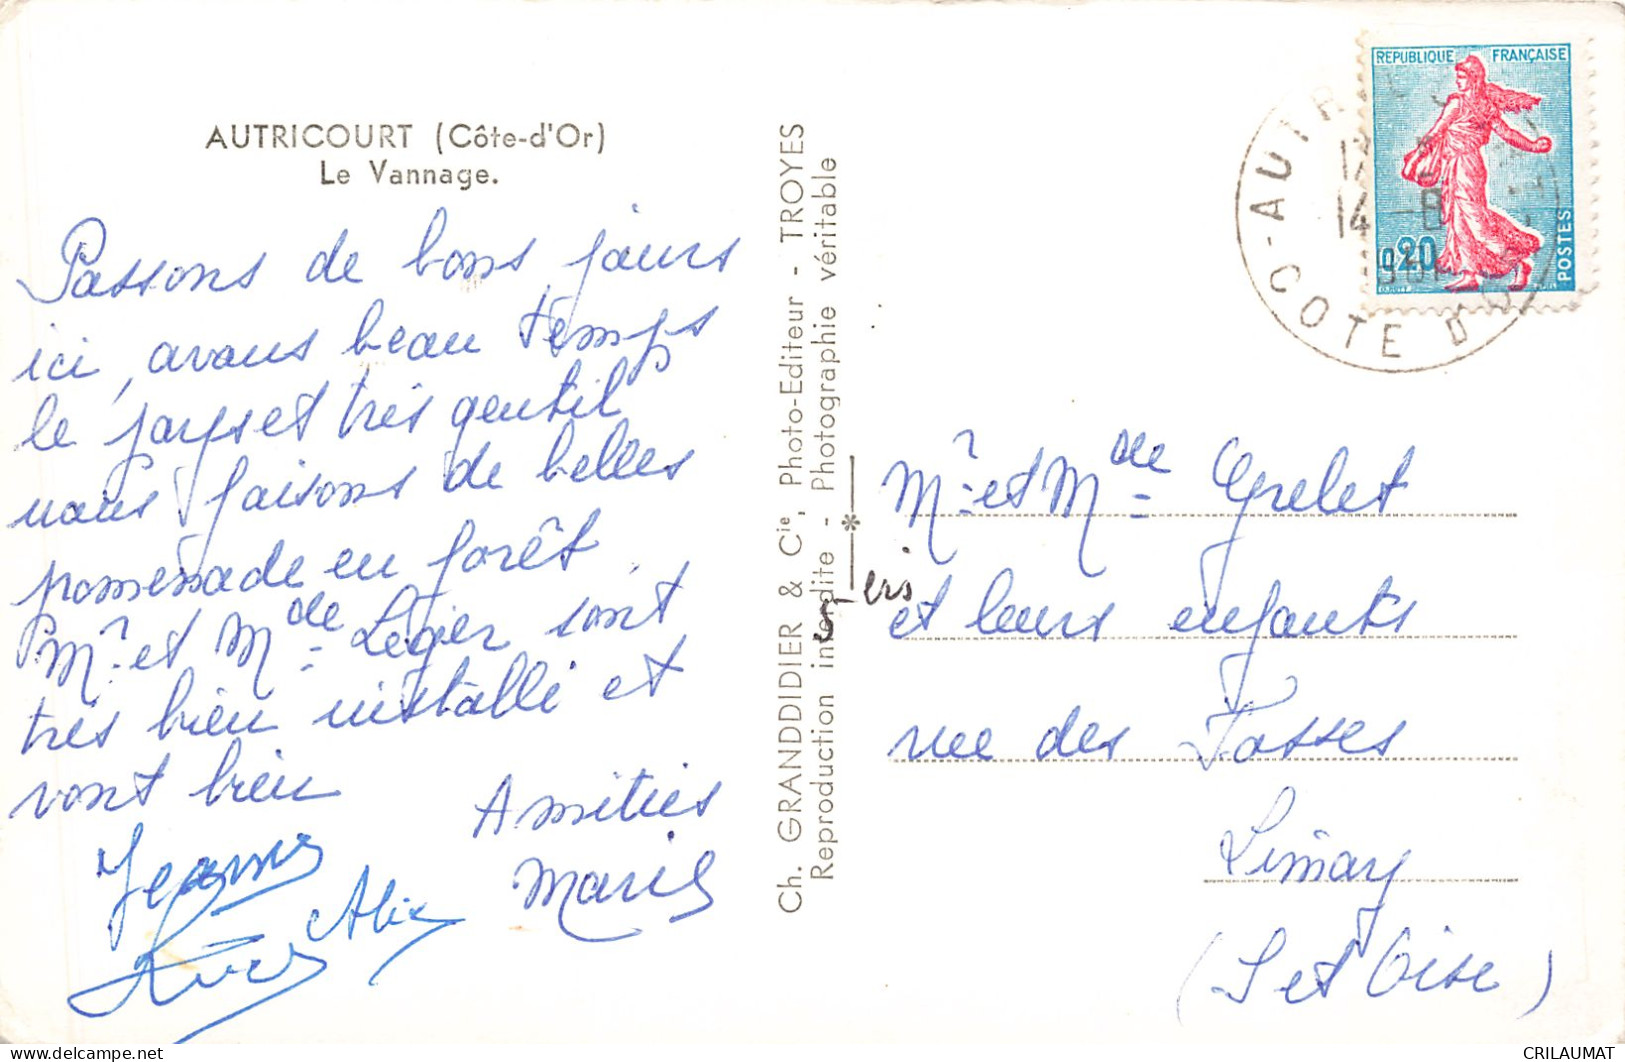 AUTRICOURT (Côte-d'Or)
Le Vannage.
Passons de bons jours
ici, avons beau temps
le pays est très gentil
nous faisons de belles
promenade en forêt
Mr et Mde Légier sont
très bien installé et
vont bien
Amitiés
Jeanne
Alix
Marie
Ch. GRANDDIDIER & Cie, Photo-Editeur - TROYES
Reproduction interdite - Photographie véritable
REPUBLIQUE FRANÇAISE
0,20
POSTES
AUTR
14 -8
COTE D'OR
Mr et Mde Grelet
et leurs enfants
rue des Fosses
Limay
(S et Oise)
CRILAUMAT